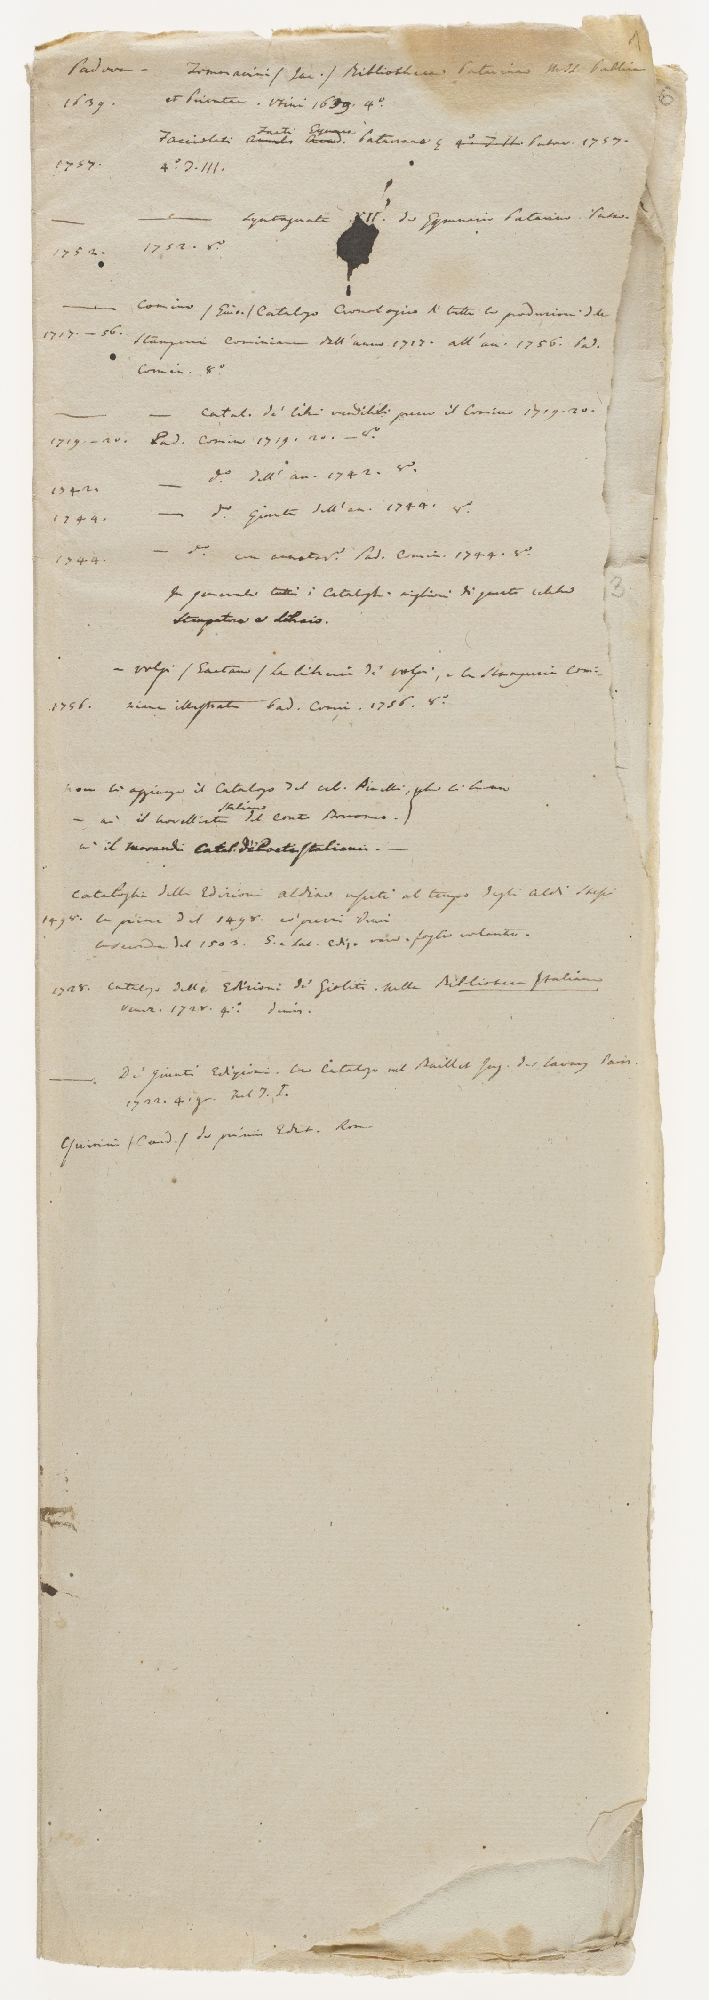 Padova - Tomasini / Jac. / Bibliothecae Patavinae MSS. Publicae
1639. et Privatae. Utini 1639. 4.º
Fasti Gymn.
Facciolati Patavini Patav. 1757.
1757. 4.º T. III.
— — Syntagmata XII. de Gymnasio Patavino. Patav.
1752. 1752. 8.º
— Comino / Gius. / Catalogo Cronologico di tutte le produzioni della
1717. - 56. Stamperia Cominiana dell'anno 1717. all'an. 1756. Pad.
Comin. 8.º
— — Catal. de' libri vendibili presso il Comino 1719-20.
1719. - 20. Pad. Comino 1719. 20. - 8.º
1742. — d.º dell'an. 1742. 8.º
1744. — d.º Giunta dell'an. 1744. 8.º
1744. — d.º con annotaz.i Pad. Comin. 1744. 8.º
In generale tutti i Cataloghi migliori di questo celebre
Stampatore e Libraio.
- Volpi / Gaetano / La libreria de' Volpi, e la Stamperia Comi-
1756. niana illustrata Pad. Comin. 1756. 8.º
non si aggiunge il Catalogo del cel. Pinelli, che si
Italiano
- nè il Novelliero del Conte Borromeo.
nè il Morandi Catal. di Poeti Italiani. —
Cataloghi delle Edizioni Aldine usciti al tempo degli Aldi stessi
1498. la prima del 1498.
la seconda del 1503. foglio volante.
1728. Catalogo delle Edizioni de' Gioliti. nella Biblioteca Italiana
Venez. 1728. 4.º
—. De' Giunti Edizioni. Un Catalogo nel Baillet Jug. des Savans Paris.
1722. 4. gr. nel T. I.
Quirini / Card. / de primis Edit. Rom
3
6